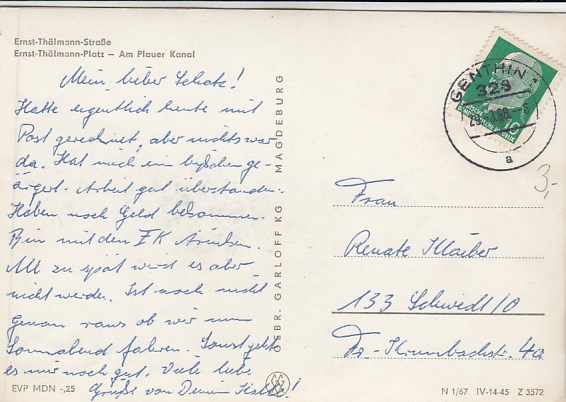 Ernst-Thälmann-Straße
Ernst-Thälmann-Platz – Am Plauer Kanal
Mein lieber Schatz!
Hatte eigentlich heute mit
Post gerechnet, aber nichts war
da. Hat mich ein bißchen ge-
ärgert. Arbeit gut überstanden.
Haben noch Geld bekommen.
Bin mit den FK trinken.
All zu spät wird es aber
nicht werden. Ist noch nicht
genau raus ob wir nun
Sonnabend fahren. Sonst geht
es mir noch gut. Viele liebe
Grüße von Deinem
EVP MDN -,25
GEBR. GARLOFF KG MAGDEBURG
GENTHIN 1
328
a
10
3,-
Frau
Renate Klaiber
133 Schwedt/O
Dr.-Krumbachstr.
N 1/67 IV-14-45 Z 3572